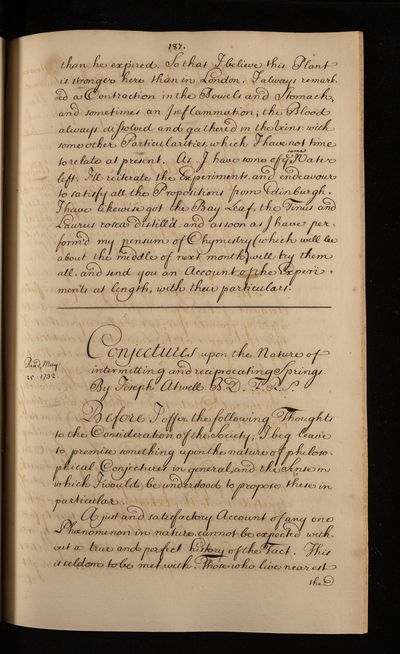 187.
than he expired. So that I believe this Plant
is stronger here than in London. I always remark,
ed a Contraction in the Bowels and Stomach,
and sometimes an Inflammation; the Blood
always dissolved and gathered in the Veins: with
some other Particularities, which I have not time
to relate at present. As I have some of ye same Water
left, I'll reiterate the Experiments, and endeavour
to satisfy all the Propositions from Edinburgh.
I have likewise got the Bay Leaf, the Tinus and
Laurus rosea distill'd: and as soon as I have per
form'd my pensum of Chymistry (which will be
about the middle of next month) will try them
all, and send you an Account of the Experi-
ments at length, with their particulars.
Conjectures upon the Nature of
Read, May
25. 1732
intermitting and reciprocating Springs.
By Joseph Atwell B.D. F.R.S.
Before I offer the following Thoughts
to the Consideration of the Society; I beg leave
to premise something upon the nature of philoso-
phical Conjectures in general, and the Sense in
which I would be understood to propose these in
particular.
A just and satisfactory Account of any one
Phænomenon in nature cannot be expected with-
out a true and perfect history of the Fact. This
is seldom to be met with. Those who live nearest
the